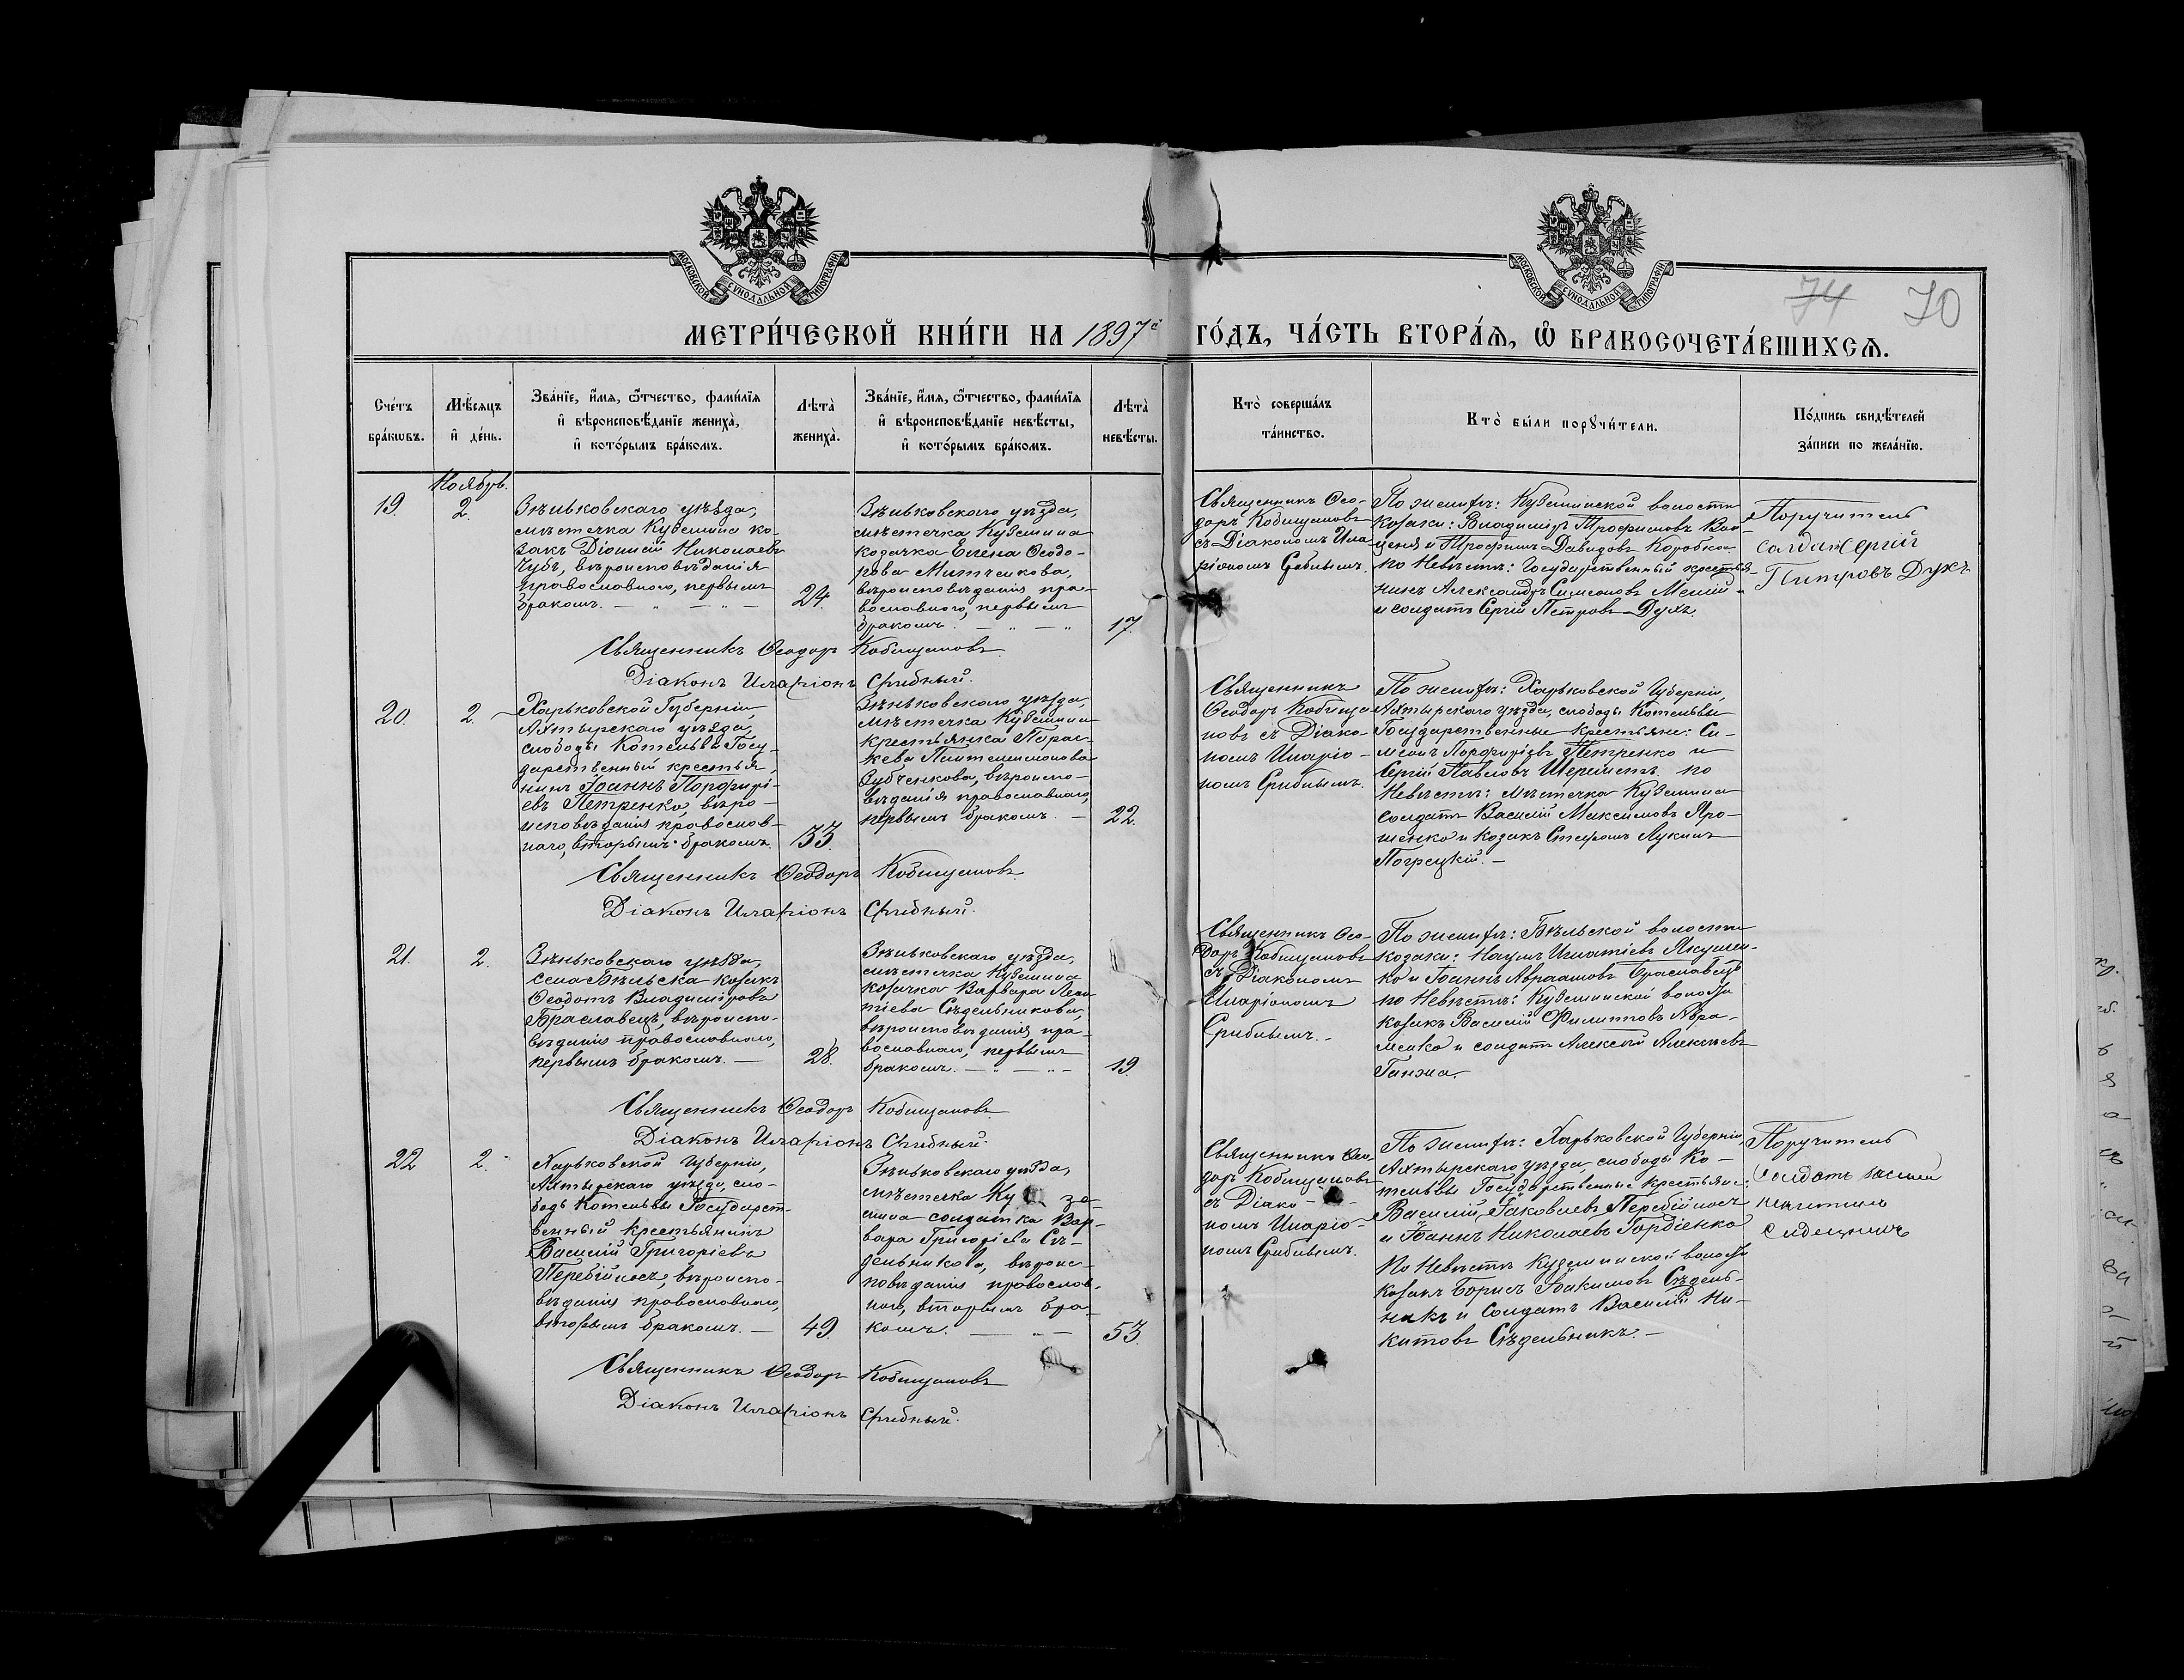 МОСКОВСКОЙ СѴНОДАЛЬНОЙ ТИПОГРАФІИ
МОСКОВСКОЙ СѴНОДАЛЬНОЙ ТИПОГРАФІИ
74 70
МЕТРИ́ЧЕСКОЙ КНИ́ГИ НА 1897
ГО́ДЪ, ЧА́СТЬ ВТОРА́Я, Ѽ БРАКОСОЧЕТА́ВШИХСЯ.
Сче́тъ
бра́кѡвъ.
Мѣ́сяцъ
и҆ де́нь.
Зва́нїе, и҆́мя, ѻ҆́тчество, фами́лїя
и҆ вѣроисповѣ́данїе жениха̀,
и҆ кото́рымъ бра́комъ.
Лѣта̀
жениха̀.
Зва́нїе, и҆́мя, ѻ҆́тчество, фами́лїя
и҆ вѣроисповѣ́данїе невѣ́сты,
и҆ кото́рымъ бра́комъ.
Лѣта̀
невѣ́сты.
Кто̀ соверша́лъ
та́инство.
Кто̀ бы́ли порꙋчи́тели.
По́дпись свидѣ́телей
за́писи по жела́нїю.
Ноябрь.
19.
2.
Зѣньковскаго уѣзда,
мѣстечка Куземина ко-
закъ Діонисій Николаевъ
Чубъ, вѣроисповѣданія
православнаго, первымъ
бракомъ. — „ — „ —
24.
Зѣньковскаго уѣзда,
мѣстечка Куземина
козачка Елена Ѳеодо-
рова Митченкова,
вѣроисповѣданія пра-
вославнаго, первымъ
бракомъ. — „ — „
17.
Священникъ Ѳео-
доръ Кобищановъ
съ Діакономъ Ила-
ріономъ Срибнымъ.
По женихѣ: Куземинской волости
козаки: Владиміръ Трофимовъ
и Трофимъ Давидовъ Коробка
по Невѣстѣ: Государственный крестья-
нинъ Александръ Симеоновъ
и солдатъ Сергій Петровъ Духъ.
Поручитель
салдат Сергій
Питровъ Духъ
Священникъ Ѳеодоръ Кобищановъ
Діаконъ Иларіонъ Срибный.
20.
2.
Харьковской Губерніи,
Ахтырскаго уѣзда,
слободы Котельвы Госу-
дарственный крестья-
нинъ Іоаннъ Порфирі-
евъ Петренко, вѣро-
исповѣданія православ-
наго, вторымъ бракомъ.
33.
Зѣньковскаго уѣзда,
мѣстечка Куземина
крестьянка Парас-
кева Пантелеимонова
Зубченкова, вѣроиспо-
вѣданія православнаго,
первымъ бракомъ. —
22.
Священникъ
Ѳеодоръ Кобища-
новъ съ Діако-
номъ Иларіо-
номъ Срибнымъ.
По женихѣ: Харьковской Губерніи,
Ахтырскаго уѣзда, слободы Котельвы
Государственные крестьяне: Си-
меонъ Порфиріевъ Петренко и
Сергій Павловъ Шереметъ по
Невѣстѣ: мѣстечка Куземина
солдатъ Василій Максимовъ Яро-
шенко и козакъ Стефанъ Лукинъ
Погрецкій. —
Священникъ Ѳеодоръ Кобищановъ
Діаконъ Иларіонъ Срибный.
21.
2.
Зѣньковскаго уѣзда,
села Бѣльска козакъ
Ѳеодотъ Владиміровъ
Браславецъ, вѣроиспо-
вѣданія православнаго,
первымъ бракомъ. —
28.
Зѣньковскаго уѣзда,
мѣстечка Куземина
козачка Варвара Леон-
тіева Сѣдельникова,
вѣроисповѣданія пра-
вославнаго, первымъ
бракомъ. — „ — „ —
19.
Священникъ Ѳео-
доръ Кобищановъ
съ Діакономъ
Иларіономъ
Срибнымъ.
По женихѣ: Бѣльской волости
козаки: Наумъ Игнатіевъ Якушен-
ко и Іоаннъ Авраамовъ Браславецъ
по Невѣстѣ: Куземинской волости
козакъ Василій Филипповъ Абра-
менко и солдатъ Алексѣй Алексѣевъ
Ганжа.
Священникъ Ѳеодоръ Кобищановъ
Діаконъ Иларіонъ Срибный.
22
2.
Харьковской Губерніи,
Ахтырскаго уѣзда, сло-
боды Котельвы Государст-
венный крестьянинъ
Василій Григоріевъ
Перебійносъ, вѣроиспо-
вѣданія православнаго,
вторымъ бракомъ. —
49.
Зѣньковскаго уѣзда,
мѣстечка Ку зе-
мина солдатка Вар-
вара Григоріева Сѣ-
дельникова, вѣроис-
повѣданія православ-
наго, вторымъ бра-
комъ. — „ —
53.
Священникъ Ѳео-
доръ Кобищановъ
съ Діако-
номъ Иларіо-
номъ Срибнымъ.
По женихѣ: Харьковской Губерніи,
Ахтырскаго уѣзда, слободы Ко-
тельвы Государственные крестьяне:
Василій Іаковлевъ Перебійносъ
и Іоаннъ Николаевъ Гордіенко
По Невѣстѣ Куземинской волости
козакъ Борисъ Іоакимовъ Сѣдель-
никъ и Солдатъ Василій Ни-
китовъ Сѣдельникъ. —
Поручитель
Солдатъ
Священникъ Ѳеодоръ Кобищановъ
Діаконъ Иларіонъ Срибный.